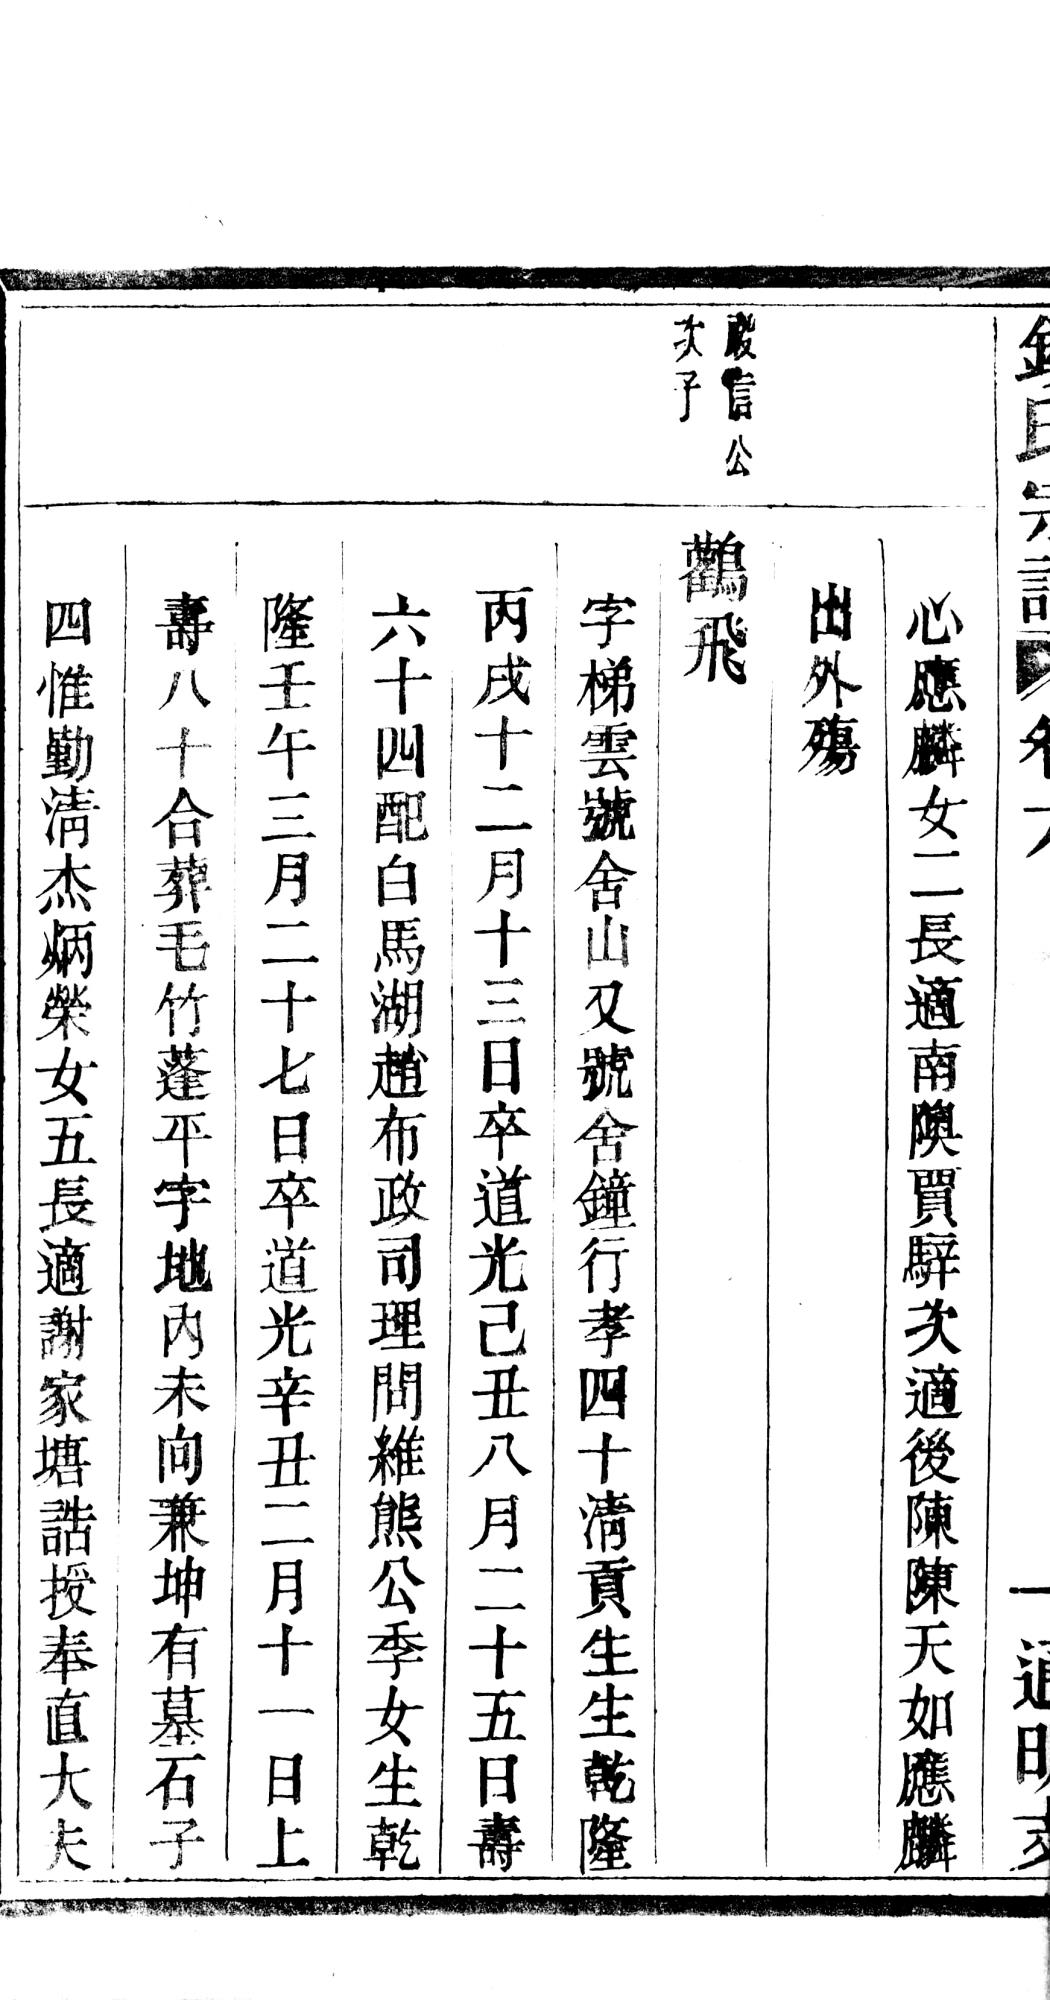 心應麟女二長適南隩賈騂次適後陳陳天如應麟
出外殤
殿信公
次子
鸛飛
字梯雲號舍山又號舍鐘行孝四十淸貢生生乾隆
丙戌十二月十三日卒道光己丑八月二十五日壽
六十四配白馬湖趙布政司理問維熊公季女生乾
隆壬午三月二十七日卒道光辛丑二月十一日上
壽八十合葬毛竹蓬平字地內未向兼坤有墓石子
四惟勤淸杰炳榮女五長適謝家塘誥授奉直大夫